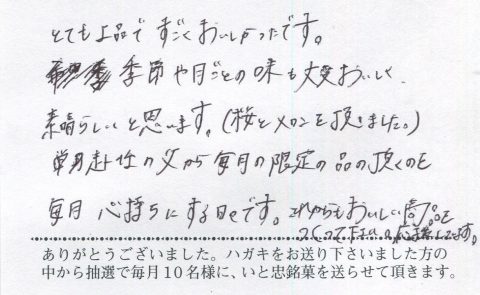 とても上品ですごくおいしかったです。
季節や月ごとの味も大変おいしく、
素晴らしいと思います。(桜とメロンを頂きました。)
単身赴任の父から毎月の限定の品の頂くのを
毎月 心持ちにする日々です。これからもおいしい商品を
つくって下さい。応援してます。
ありがとうございました。ハガキをお送り下さいました方の
中から抽選で毎月10名様に、いと忠銘菓を送らせて頂きます。